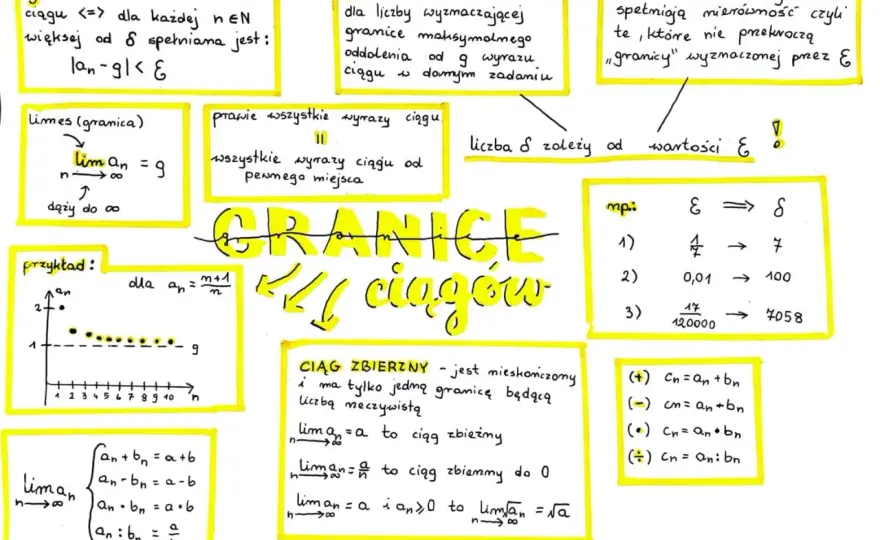 ciągu <=> dla każdej n ∈ N
większej od δ spełniona jest:
|an - g| < ε
dla liczby wyznaczającej
granicę maksymalnego
oddalenia od g wyrazu
ciągu w danym zadaniu
spełniają nierówność czyli
te, które nie przekroczą
„granicy" wyznaczonej przez ε
liczba δ zależy od wartości ε !
limes (granica)
lim an = g
n → ∞
dąży do ∞
prawie wszystkie wyrazy ciągu
=
wszystkie wyrazy ciągu od
pewnego miejsca
GRANICE
granice
ciągów
np.: ε => δ
1) 1/7 → 7
2) 0,01 → 100
3) 17/120000 → 7058
przykład:
dla an = n+1/n
an
2
1
g
1 2 3 4 5 6 7 8 9 10 n
CIĄG ZBIERZNY - jest nieskończony
i ma tylko jedną granicę będącą
liczbą rzeczywistą
lim an = a to ciąg zbieżny
n → ∞
lim an = a/n to ciąg zbierzny do 0
n → ∞
lim an = a i an ≥ 0 to lim √an = √a
n → ∞ n → ∞
(+) Cn = an + bn
(-) Cn = an - bn
(•) Cn = an • bn
(÷) Cn = an : bn
lim an
n → ∞
an + bn = a + b
an - bn = a - b
an • bn = a • b
an : bn = a